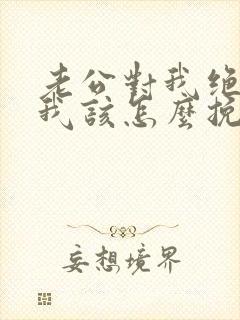 老公對我絕
我該怎麼挽
妄想境界